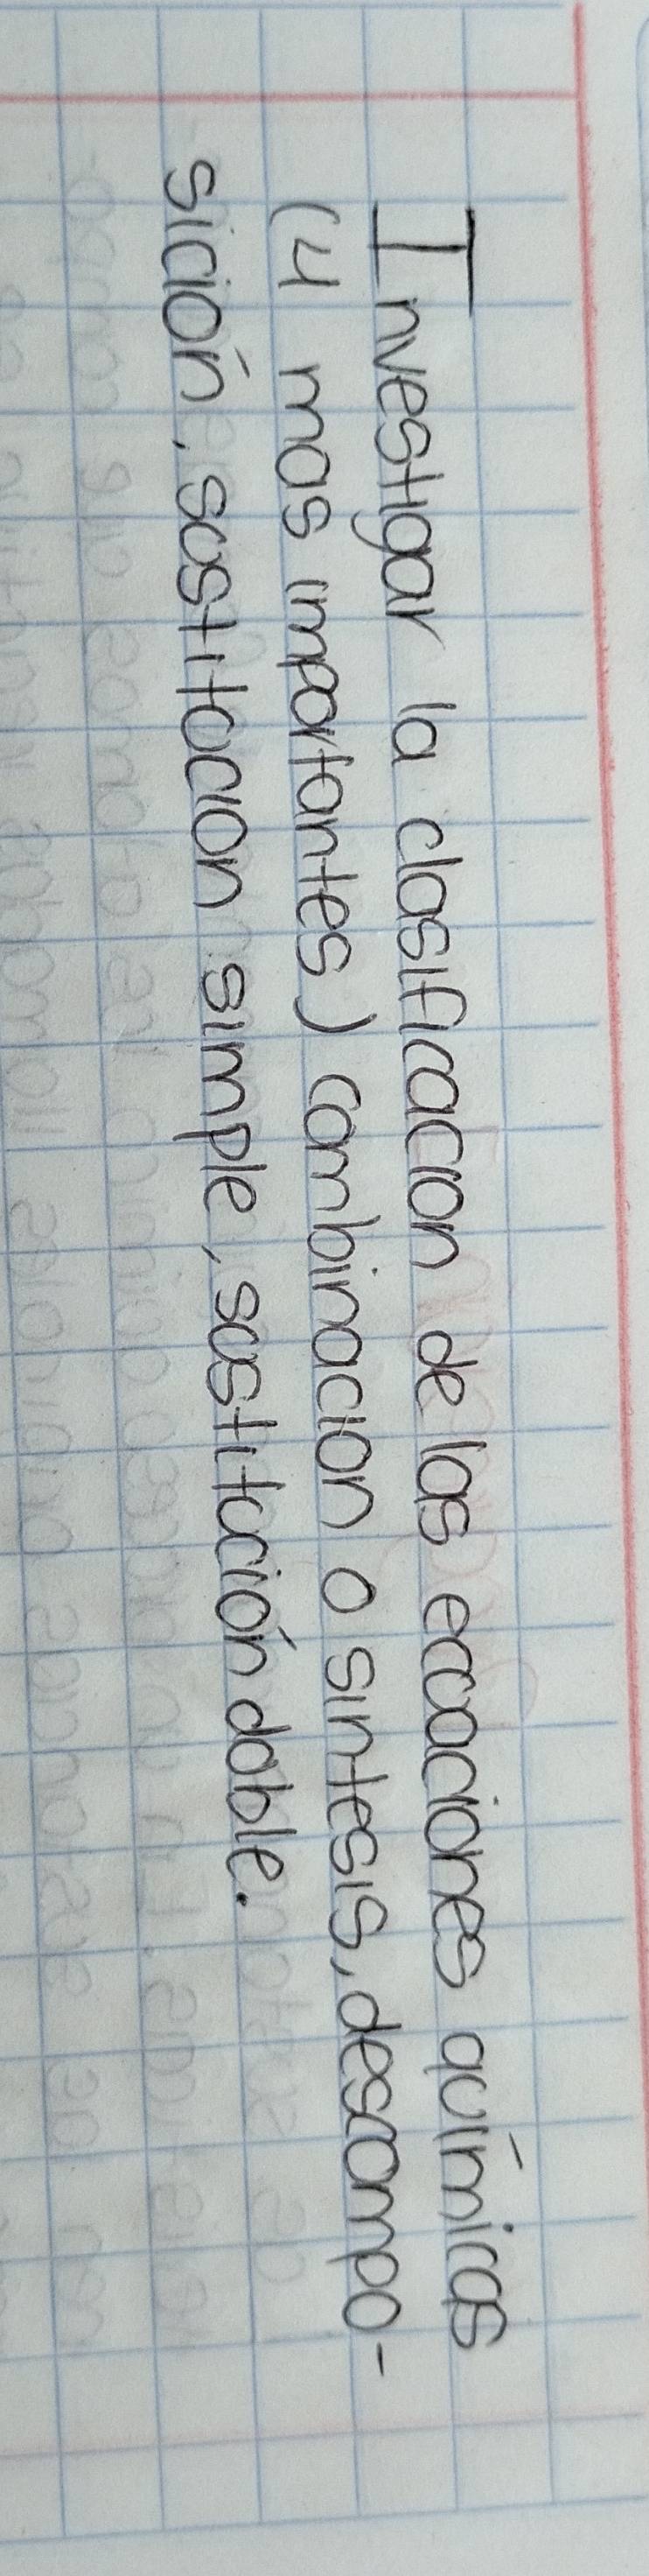 Investigar la clasificacion de las ecuaciones químicas
(4 mas importantes) combinacion o sintesis, descompo-
sición, sustitucion simple, sustitución doble.